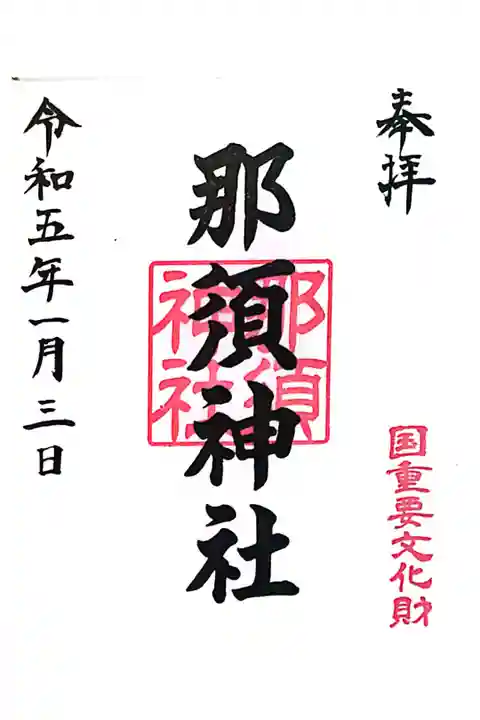 奉拝
国重要文化財
那須神社
那須神社
令和五年一月三日